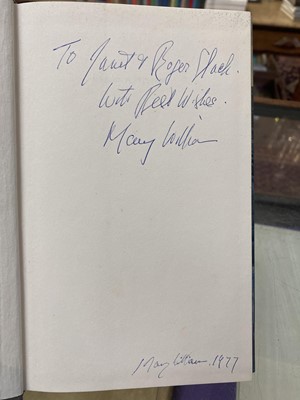 To Janet & Roger Slack.
With Best Wishes.
Mary William
Mary William. 1977